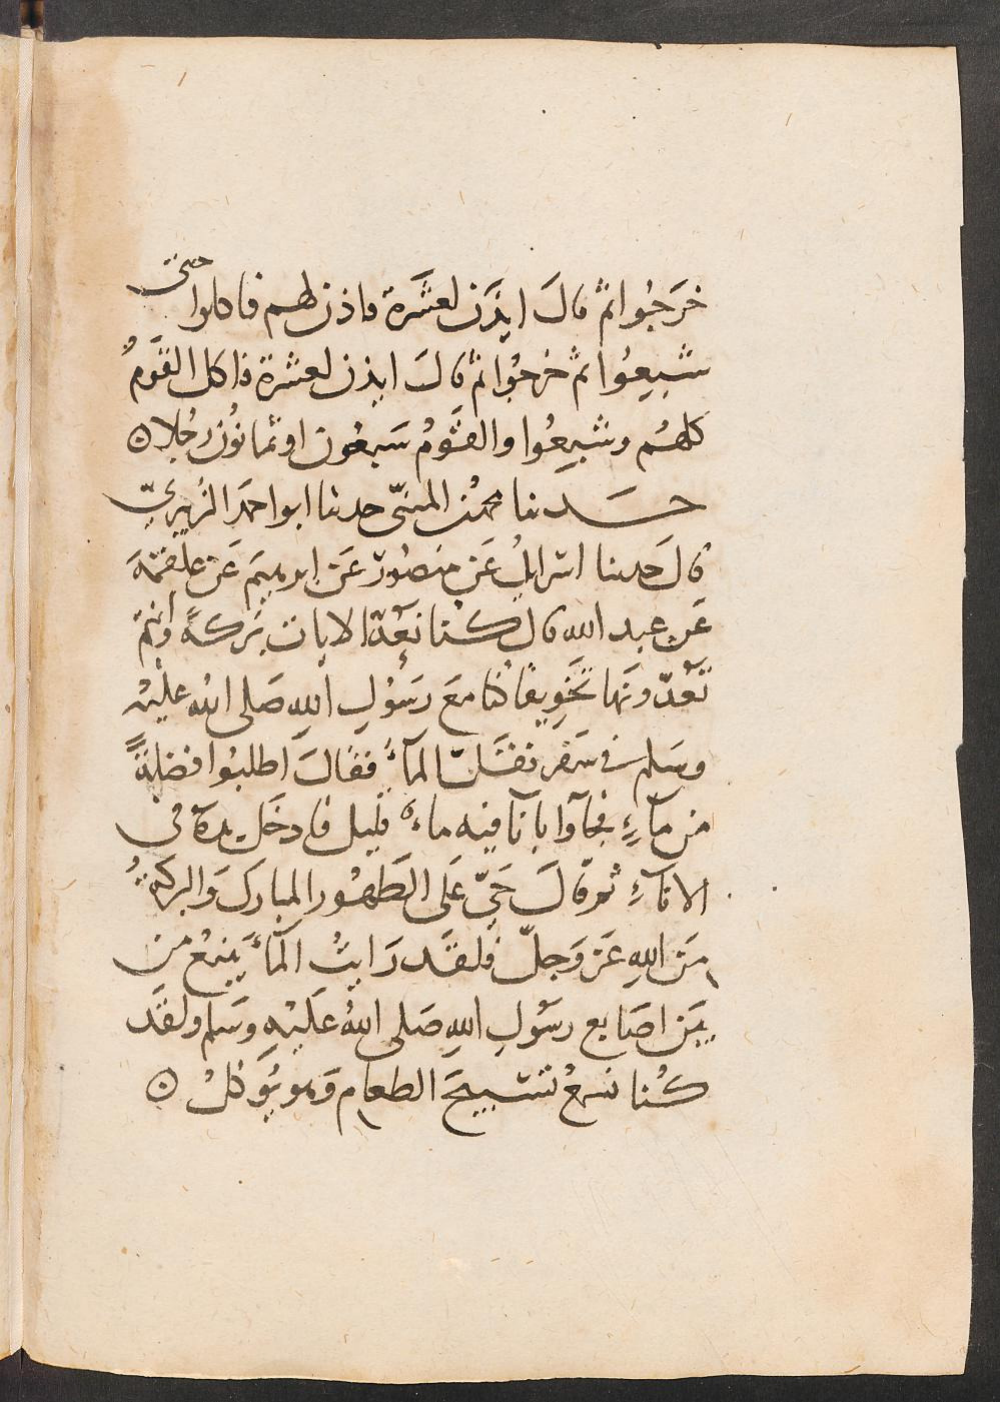 خَرَجُوا ثم قالَ ايذَن لعشَرة فاذن لهم فاكلوا حتى
شَبِعُوا ثم خرجُوا ثم قالَ ايذن لعشرة فاكل القَومُ
كلهُم وشبِعُوا والقَومُ سَبعُون او ثمانُون رجُلا ن
حَدثنا محمد بن المثنّى حدثنا ابو احمَد الزُبيريّ
قالَ حدثنا اسرائيلُ عَن منصُور عَن ابرهيمَ عَن علقمَةَ
عَن عبد الله قال كُنا نَعُدّ الايات بَركةً وانتم
تَعُدّونَها تَخوِيفًا كُنا معَ رسُولِ اللهِ صَلى اللهُ عليْه
وسَلم في سَفر فقَلّ المآءُ فقالَ اطلبُوا فضلةً
من مآءٍ فجآوا باناَ فيه ماءٌ قليل فادخَل يدَهُ في
الانآءِ ثم قالَ حَيّ عَلى الطَهُور المبارك وَالبركةُ
مِنَ اللهِ عَز وَجلّ فلقَد رَايتُ المآءَ يَنبعُ من
بَين اصَابع رسُولِ اللهِ صَلى اللهُ عَليْهِ وسَلم ولقَد
كُنا نسمعُ تسْبيحَ الطعام وَهو يُوكلُ ن